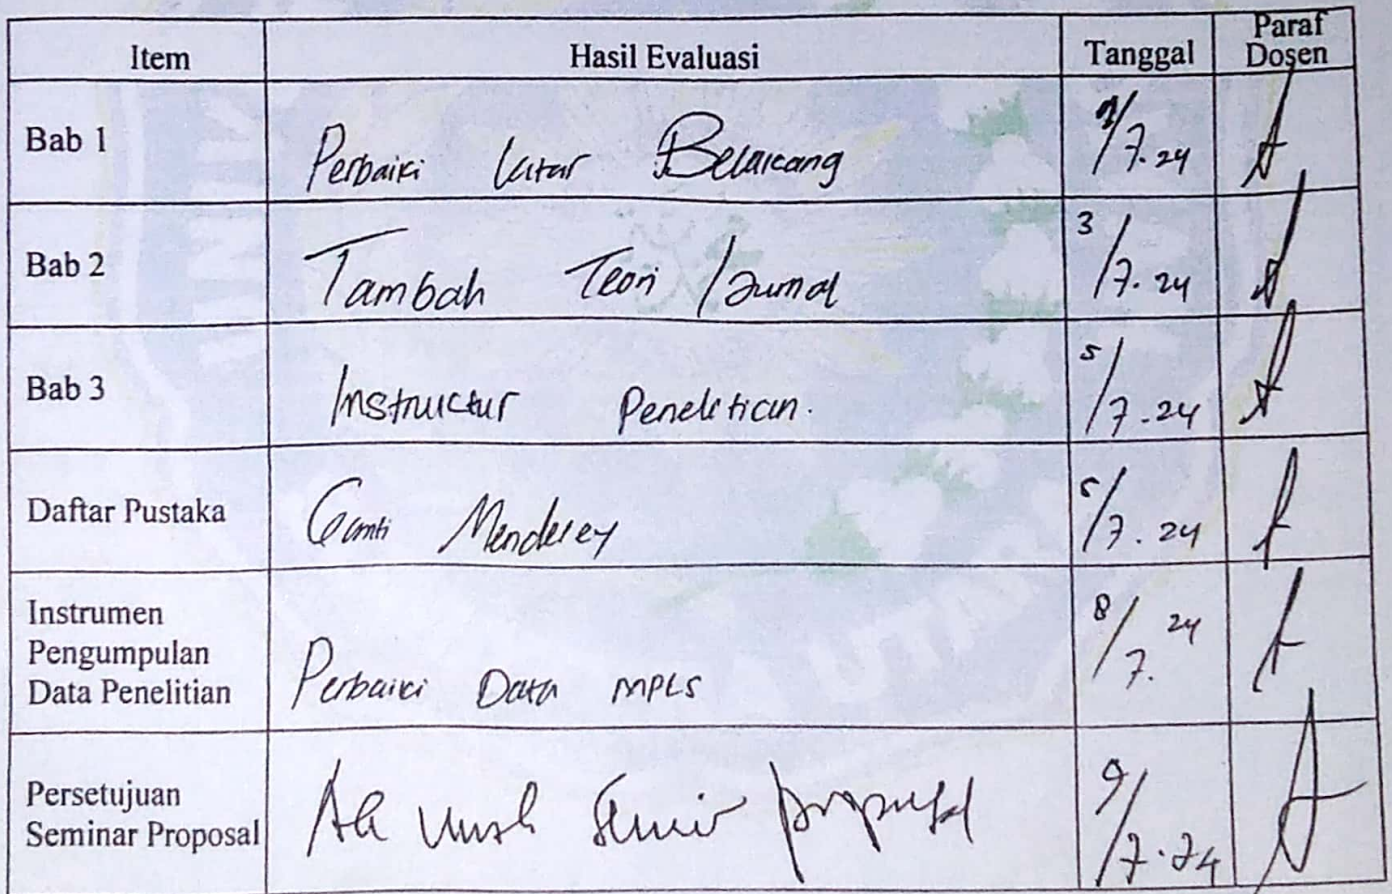 Item Hasil Evaluasi Tanggal Paraf Dosen
Bab 1 Perbaiki Latar Belakang /7.24
Bab 2 Tambah Teori / Jurnal 3/7.24
Bab 3 Instructur Penelitian. 5/7.24
Daftar Pustaka Ganti Menderey 5/7.24
Instrumen
Pengumpulan 8/7.24
Data Penelitian Perbaiki Data MPLS
Persetujuan
Seminar Proposal proposal 9/7.24